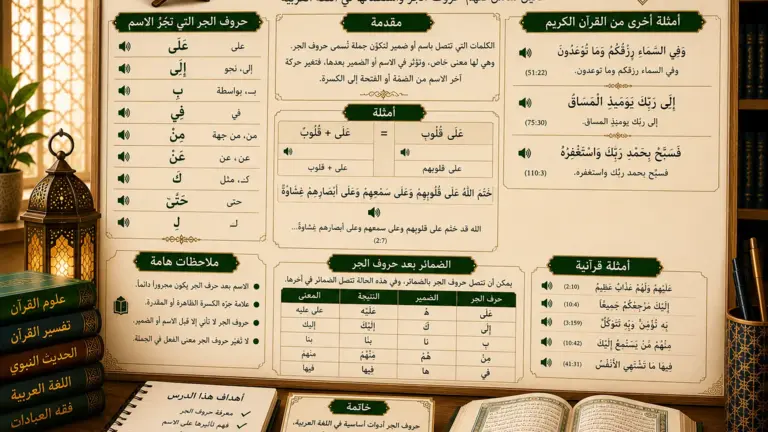 حروف الجر التي تَجُرُّ الاسم
عَلَى
على
إِلَى
إلى، نحو
بِ
بـ، بواسطة
فِي
في
مِنْ
من، من جهة
عَنْ
عن ، عن
كَ
كـ، مثل
حَتَّىٰ
حتى
لِ
لـ
مقدمة
الكلمات التي تتصل باسم أو ضمير لتكوّن جملة تُسمى حروف الجر.
وهي لها معنى خاص، وتؤثر في الاسم أو الضمير بعدها، فتغير حركة
آخر الاسم من الضمّة أو الفتحة إلى الكسرة.
أمثلة
عَلَى قُلُوبِ = عَلَى + قُلُوبٌ
على قلوبهم
على + قلوب
خَتَمَ اللَّهُ عَلَى قُلُوبِهِمْ وَعَلَى سَمْعِهِمْ وَعَلَى أَبْصَارِهِمْ غِشَاوَةٌ
الله قد ختم على قلوبهم وعلى سمعهم وعلى أبصارهم غِشاوةٌ...
(2:7)
أمثلة أخرى من القرآن الكريم
وَفِي السَّمَاءِ رِزْقُكُمْ وَمَا تُوعَدُونَ
وفي السماء رزقكم وما توعدون.
(51:22)
إِلَى رَبِّكَ يَوْمَئِذٍ الْمَسَاقُ
إلى ربّك يومئذٍ المساق.
(75:30)
فَسَبِّحْ بِحَمْدِ رَبِّكَ وَاسْتَغْفِرْهُ
فسبّح بحمد ربّك واستغفره.
(110:3)
ملاحظات هامة
الاسم بعد حرف الجر يكون مجروراً دائماً.
علامة جرّه الكسرة الظاهرة أو المقدرة.
حروف الجر لا تأتي إلا قبل الاسم أو الضمير.
لا تُغيّر حروف الجر معنى الفعل في الجملة.
الضمائر بعد حروف الجر
يمكن أن تتصل حروف الجر بالضمائر، وفي هذه الحالة تتصل الضمائر في آخرها.
حرف الجر الضمير النتيجة المعنى
عَلَى هُ عَلَيْهِ على عليه
إِلَى كَ إِلَيْكَ إليك
بِ نا بنا بنا
مِنْ هُمْ مِنْهُمْ منهم
في ها فيها فيها
أمثلة قرآنية
(2:10)
إِلَيْكَ مَرْجِعُكُمْ جَمِيعًا
(10:4)
(3:159)
مِنْهُمْ مَنْ يَسْتَمِعُ إِلَيْكَ
(10:42)
فِيهَا مَا تَشْتَهِي الْأَنْفُسُ
(41:31)
علوم القرآن
تفسير القرآن
الحديث النبوي
اللغة العربية
فقه العبادات
أهداف هذا الدرس
معرفة حروف الجر
فهم تأثيرها على الاسم
خاتمة
حروف الجر أدوات أساسية في اللغة العربية،